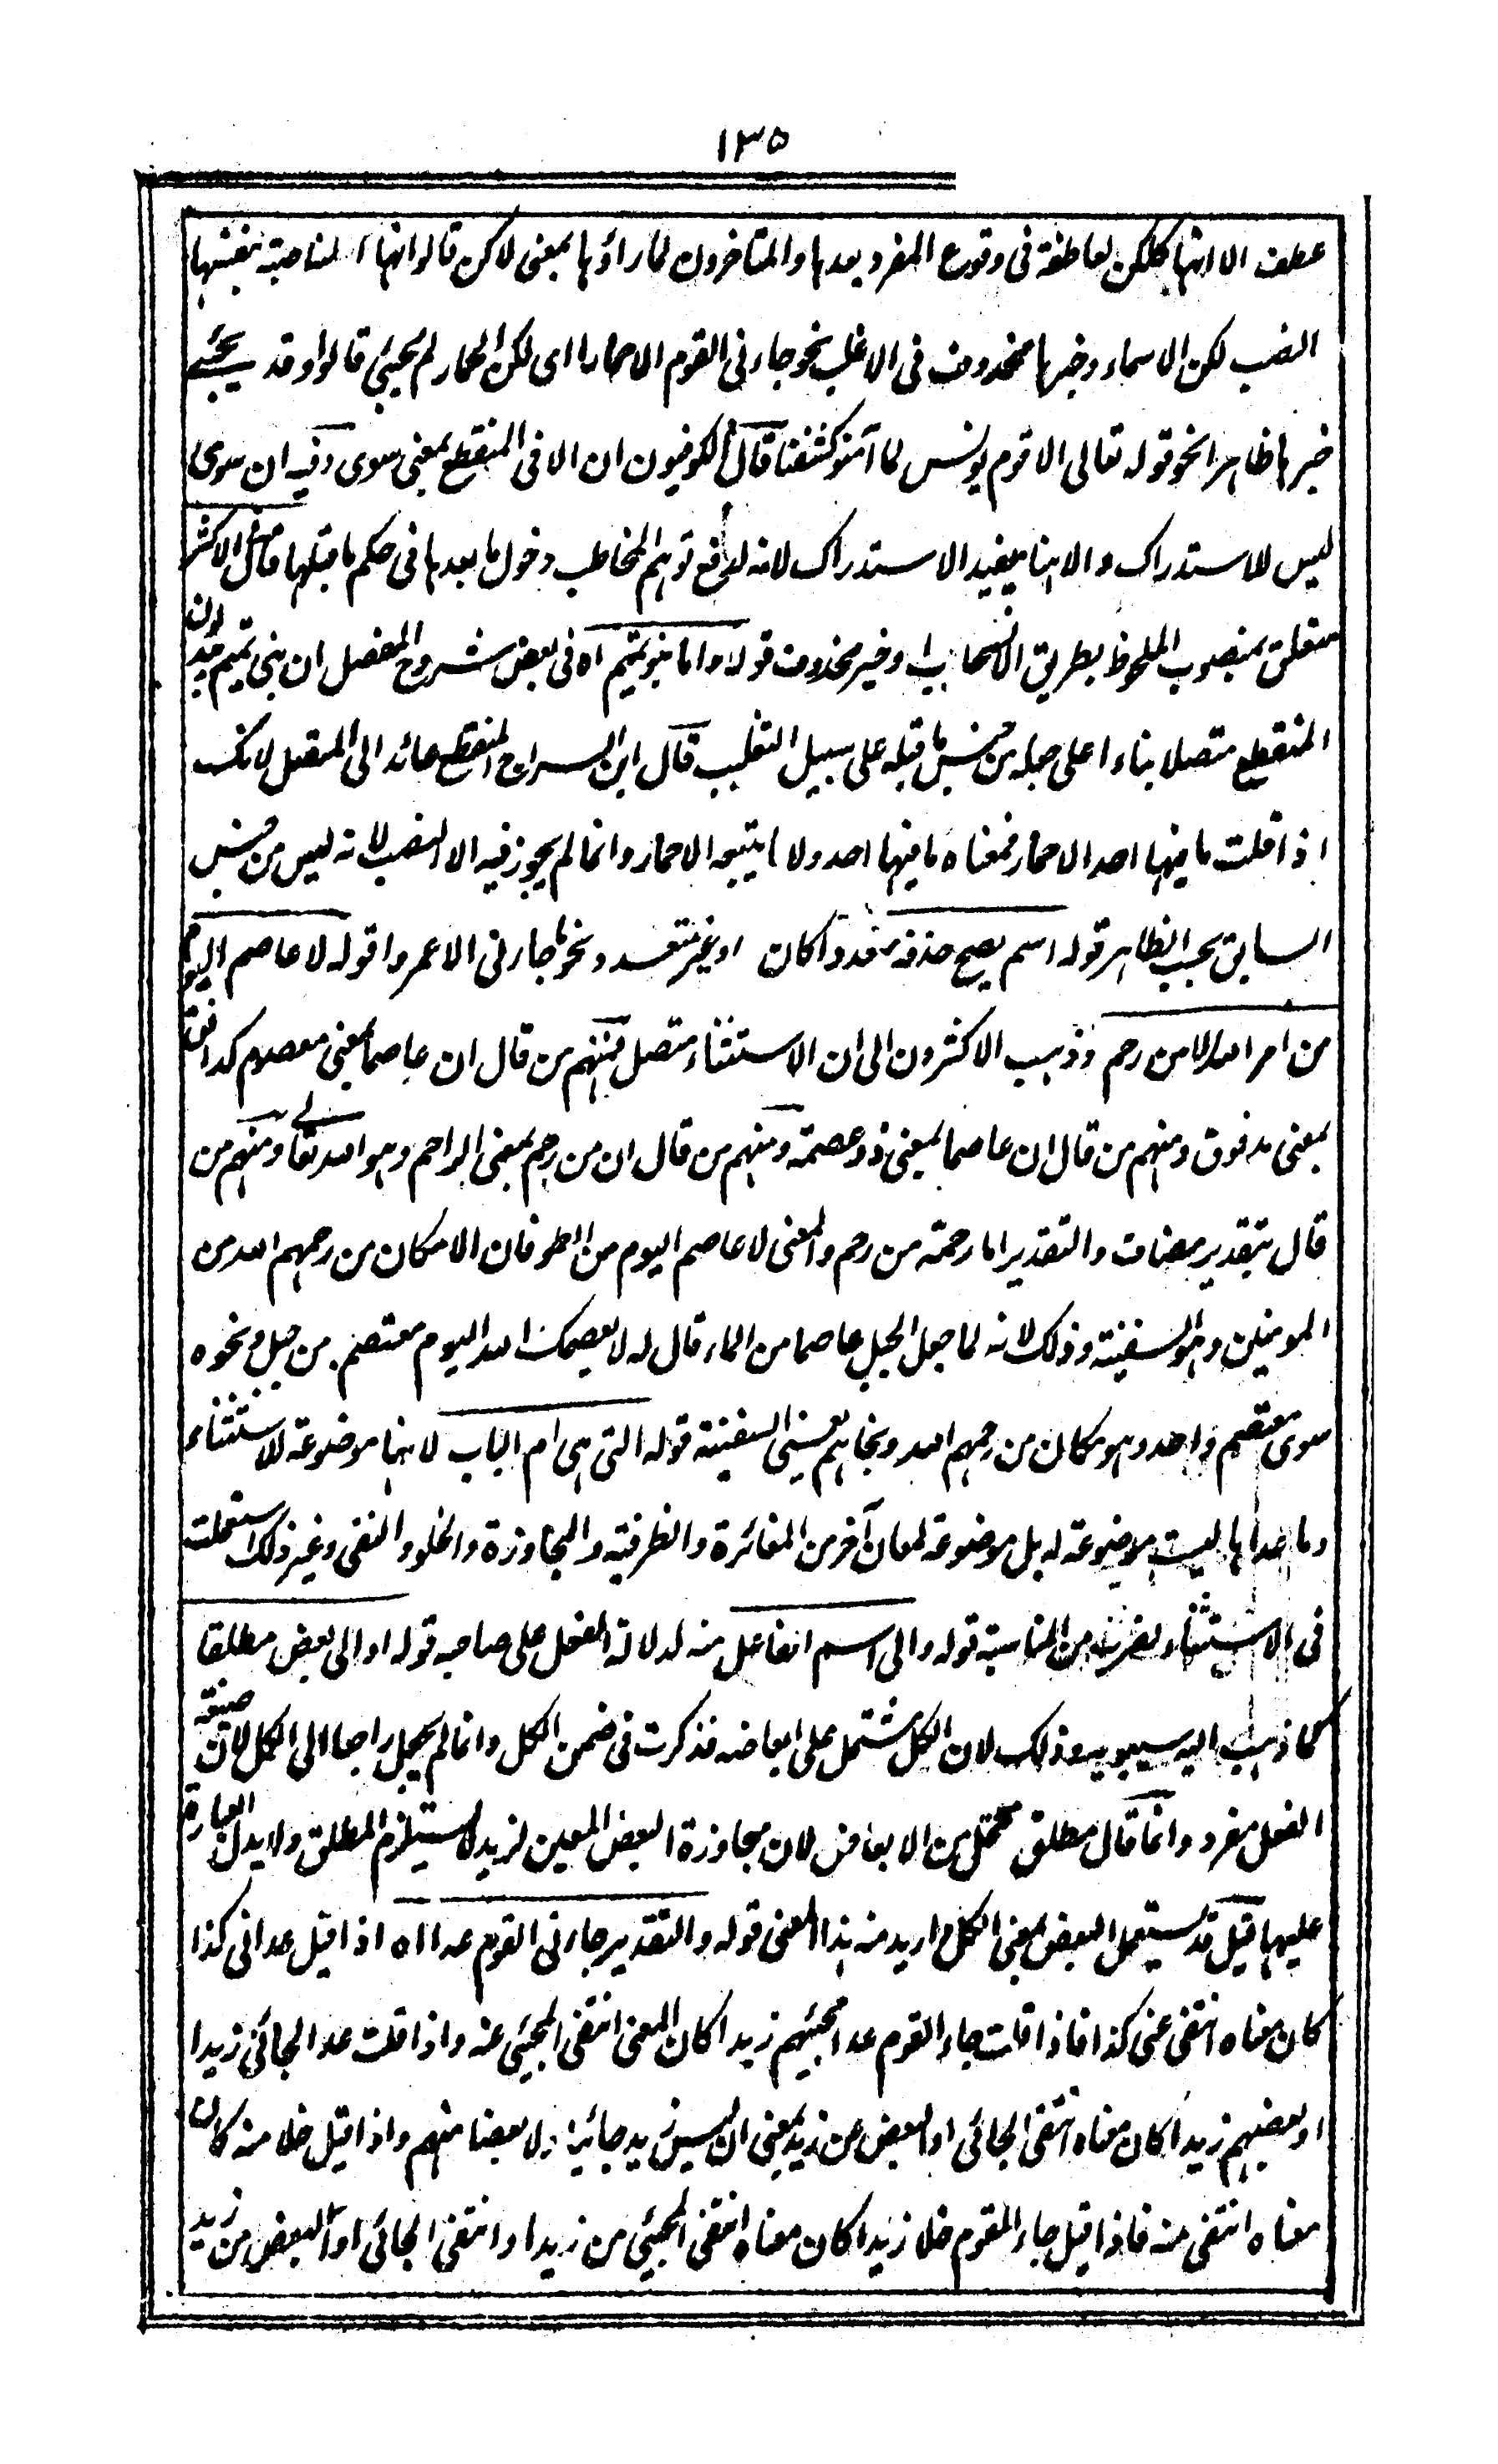 ١٣٥
عطف الا انها كلكن لعاطفة فى وقوع المفرد بعدها والمتاخرون لما راؤها بمعنى لاكن قالوا انها الناصبة بنفسها
النصب لكن الاسماء وخبرها محذوف فى الاغلب نحو جاءنى القوم الا حمارا اى لكن الحمار لم يجيئ قالوا وقد يجيئ
خبرها ظاهرا نحو قوله تعالى الا قوم يونس لما آمنو كشفنا قال الكوفيون ان الا فى المنقطع بمعنى سوى وفيه ان سوى
ليس للاستدراك والا هنا يفيد الاستدراك لانه لدفع توهم المخاطب دخول ما بعدها فى حكم ما قبلها قال الاكثر
متعلق بمنصوب الملحوظ بطريق الانسحاب او خبر محذوف قوله واما بنو تميم اه فى بعض شروح المفصل ان بنى تميم يجعلون
المنقطع متصلا بناءا على جعله من جنس ما قبله على سبيل التغليب قال ابن السراج المنقطع عائد الى المتصل لانك
اذا قلت ما فيها احد الا حمار فمعناه ما فيها احد ولا ما يتبعه الا حمار وانما لم يجوز فيه الا النصب لانه ليس من جنس
السابق بحسب الظاهر قوله اسم يصح حذفه متعددا كان او غير متعدد ونحو ما جاءنى الا عمروا قوله لا عاصم اليوم
من امر الله الا من رحم وذهب الاكثرون الى ان الاستثناء متصل فمنهم من قال ان عاصما بمعنى معصوم كدافق
بمعنى مدفوق ومنهم من قال ان عاصما بمعنى ذو عصمة ومنهم من قال ان من رحم بمعنى الراحم وهو الله تعالى ومنهم من
قال بتقدير مضاف والتقدير اما رحمة من رحم والمعنى لا عاصم اليوم من الطوفان الا مكان من رحمهم الله من
المومنين وهو السفينة وذلك لانه لما جعل الجبل عاصما من الماء قال له لا يعصمك الله اليوم معتصم من جبل ونحوه
سوى معتصم واحد وهو مكان من رحمهم الله ونجاهم يعنى السفينة قوله التى هى ام الباب لانها موضوعة للاستثناء
وما عداها ليست موضوعة له بل موضوعة لمعان آخر من المغائرة والظرفية والمجاوزة والخلو والنفى وغير ذلك استعملت
فى الاستثناء لضرب من المناسبة قوله والى اسم الفاعل منه لدلالة الفعل على صاحبه قوله او الى بعض مطلقا
كما ذهب اليه سيبويه وذلك لان الكل مشتمل على ابعاضه فذكرت فى ضمن الكل وانما لم يجعل راجعا الى الكل لان صيغة
الفعل مفرد وانما قال مطلق محتمل من الابعاض لان مجاوزة البعض المعين لزيد لا يستلزم المطلق ولا يدل العبارة
عليها قيل قد يستعمل البعض بمعنى الكل اريد منه هذا المعنى قوله والتقدير جاءنى القوم عدا اه اذا قيل عدانى كذا
كان معناه انتفى عنى كذا فاذا قلت جاء القوم عدا مجيئهم زيدا كان المعنى انتفى المجيئ عنه واذا قلت عدا الجائى زيدا
او بعضهم زيدا كان معناه انتفى الجائى او البعض عن زيد بمعنى ان ليس زيد جائيا ولا بعضا منهم واذا قيل خلا منه كان
معناه انتفى منه فاذا قيل جاء القوم خلا زيدا كان معناه انتفى المجيئ من زيدا وانتفى الجائى او البعض من زيد